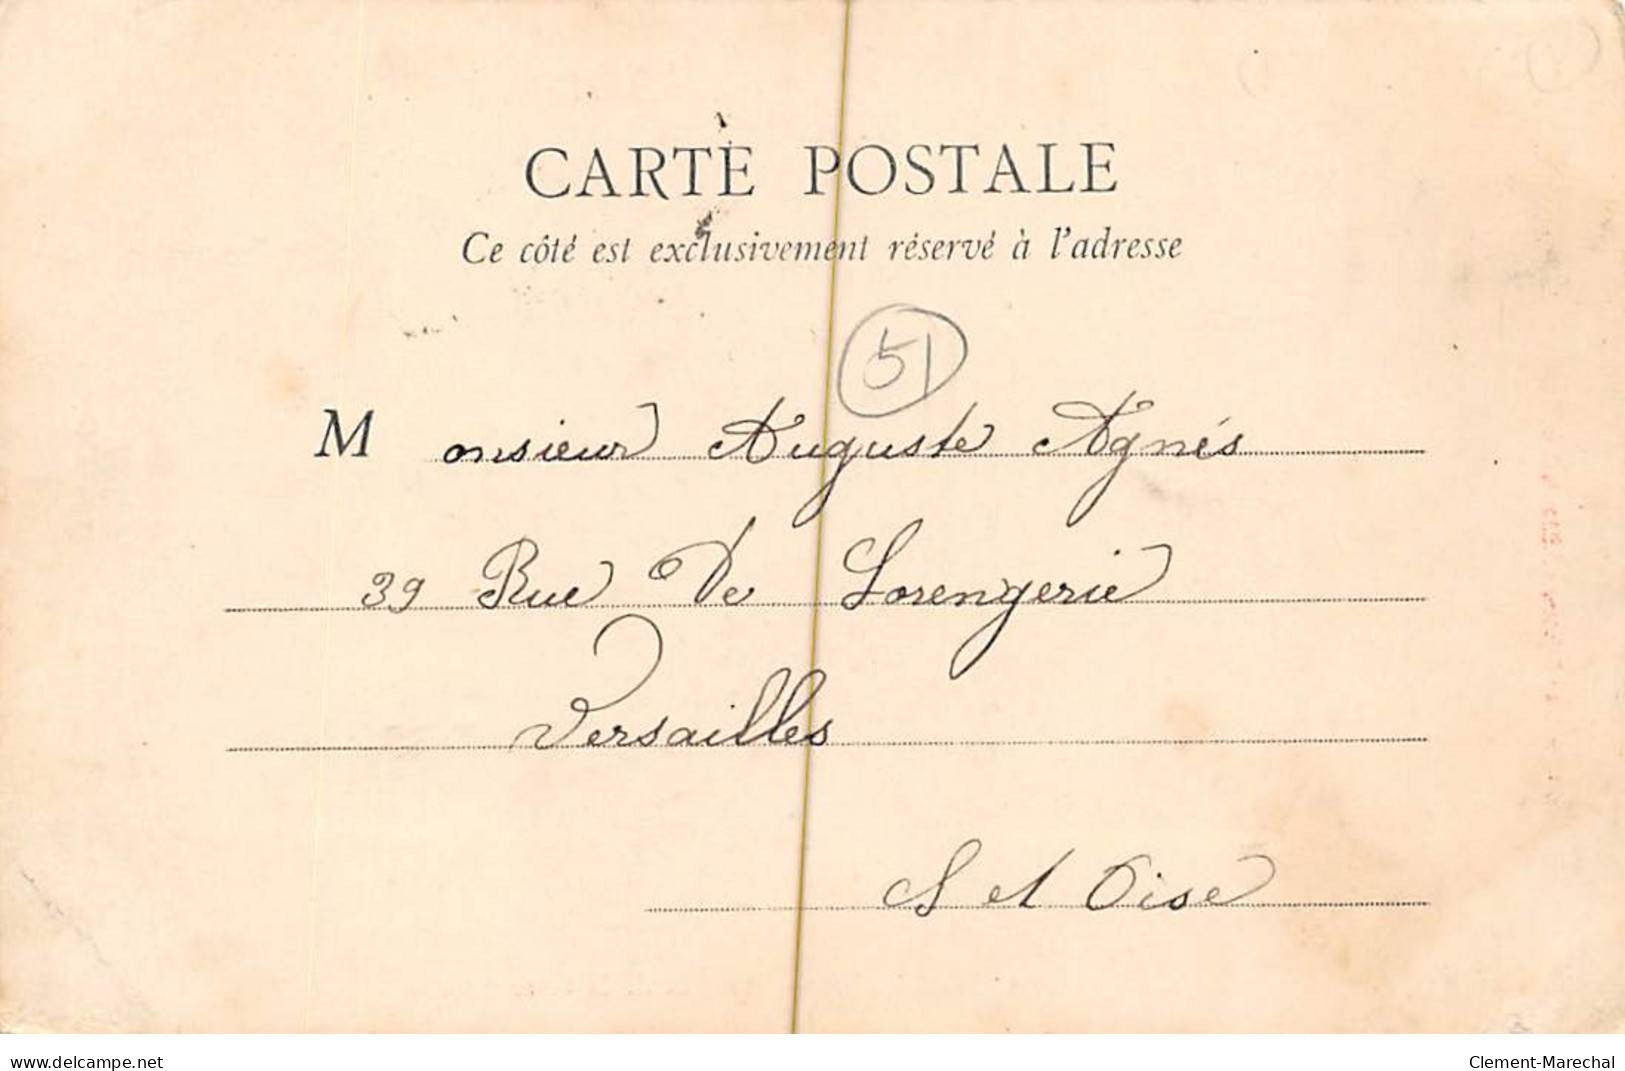 CARTE POSTALE
Ce côté est exclusivement réservé à l'adresse
51
Monsieur Auguste Agnés
39 Rue De Lorengerie
Versailles
S et Oise
www.delcampe.net Clement-Marechal